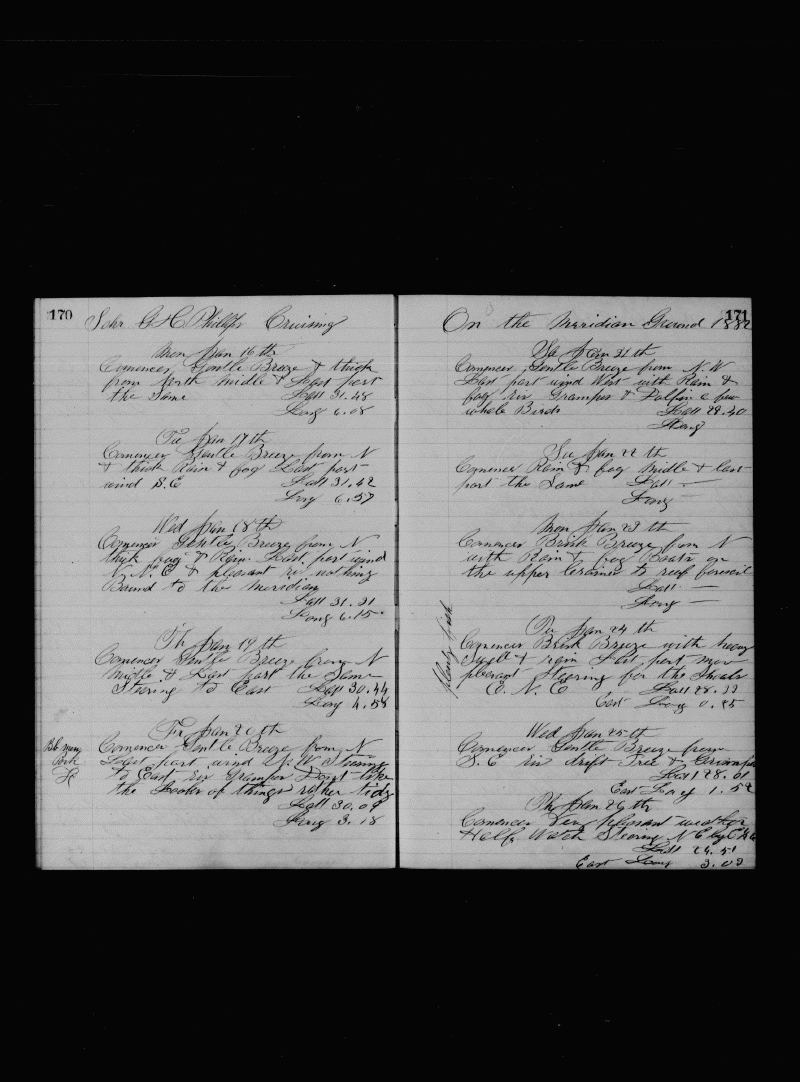 170
Schr G H Phillips Cruising
Mon Jan 16 th
Comences Gentle Breeze & thick
from North Midle & Last part
the Same Latt 31.48
Long 6.08
Tue Jan 17 th
Comences Gentle Breeze from N
& thick Rain & fog Last part
wind S.E Latt 31.42
Long 6.57
Wed Jan 18 th
Comences Gentle Breeze from N
thick fog & Rain Last part wind
N. N. E & pleasant nothing
Bound to the Meridian
Latt 31.31
Long 6.15
Th Jan 19 th
Comences Gentle Breeze from N
Midle & Last part the Same
Stearing to East Latt 30.44
Long 4.58
Fri Jan 20 th
Comences Gentle Breeze from N
Last part wind N. W Stearing
to East Grampus Dont like
the Looks of things rather tidy
Latt 30.09
Long 3.18
Bb
Pork
171
On the Meridian Ground 1882
Sa Jan 21 th
Comences Gentle Breeze from N. W
Last part wind West with Rain &
fog Grampus & Dolfin a few
whale Birds Latt 29.40
Long
Su Jan 22 th
Comences Rain & fog Midle & last
part the Same Latt —
Long —
Mon Jan 23 th
Comences Brisk Breeze from N
with Rain & fog Boats on
the upper Cranes to reef foresail
Latt —
Long —
plenty fish
Tu Jan 24 th
Comences Brisk Breeze with heavy
Swell & rain Last part more
pleasant Stearing for the Shoals
E. N. E Latt 28.33
East Long 0.25
Wed Jan 25 th
Comences Gentle Breeze from
S. E drift Tree & Grampus
Latt 28.01
East Long 1.52
Th Jan 26 th
Comences Very pleasant weather
Half Watch Stearing N E by E
Latt 26.51
East Long 3.03